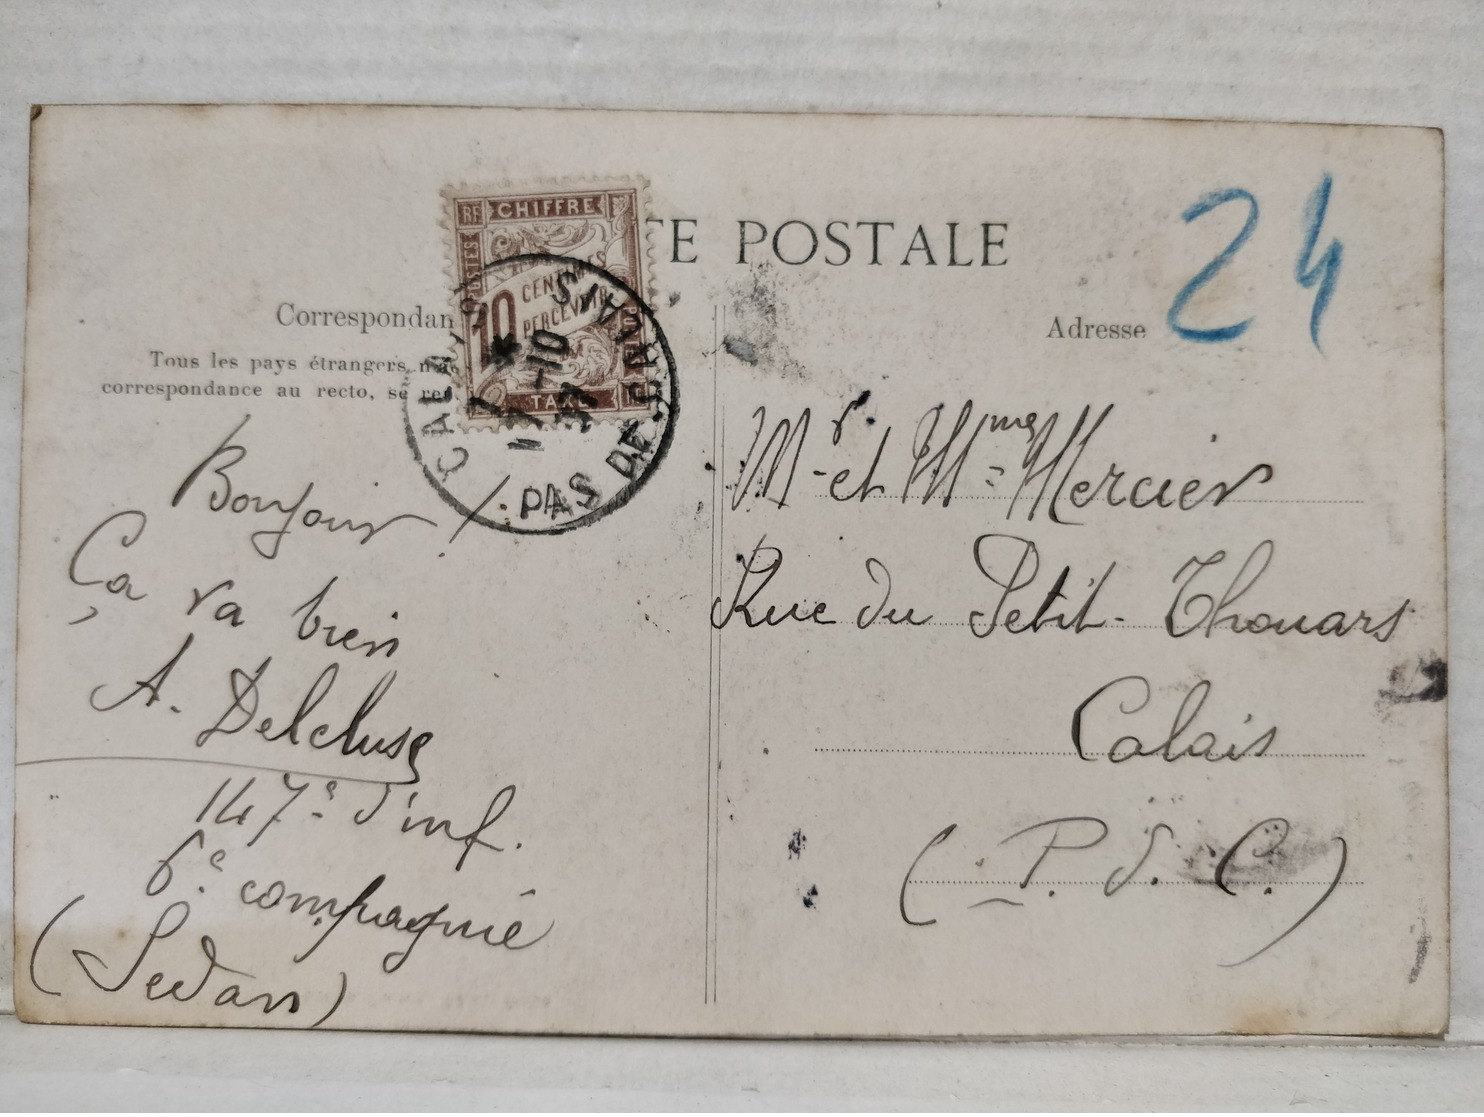 TE POSTALE
24
RF CHIFFRE
POSTES
10 CENTIMES
PERCEVOIR
TAXE
CALAIS CALAIS
PAS DE
Correspondan
Tous les pays étrangers
correspondance au recto, se
Adresse
Bonjour !
Ça va bien
A. Delcluse
147e d'inf.
6e compagnie
(Sedan)
Mr et Mme Mercier
Rue du Petit-Thouars
Calais
(P. d. C.)